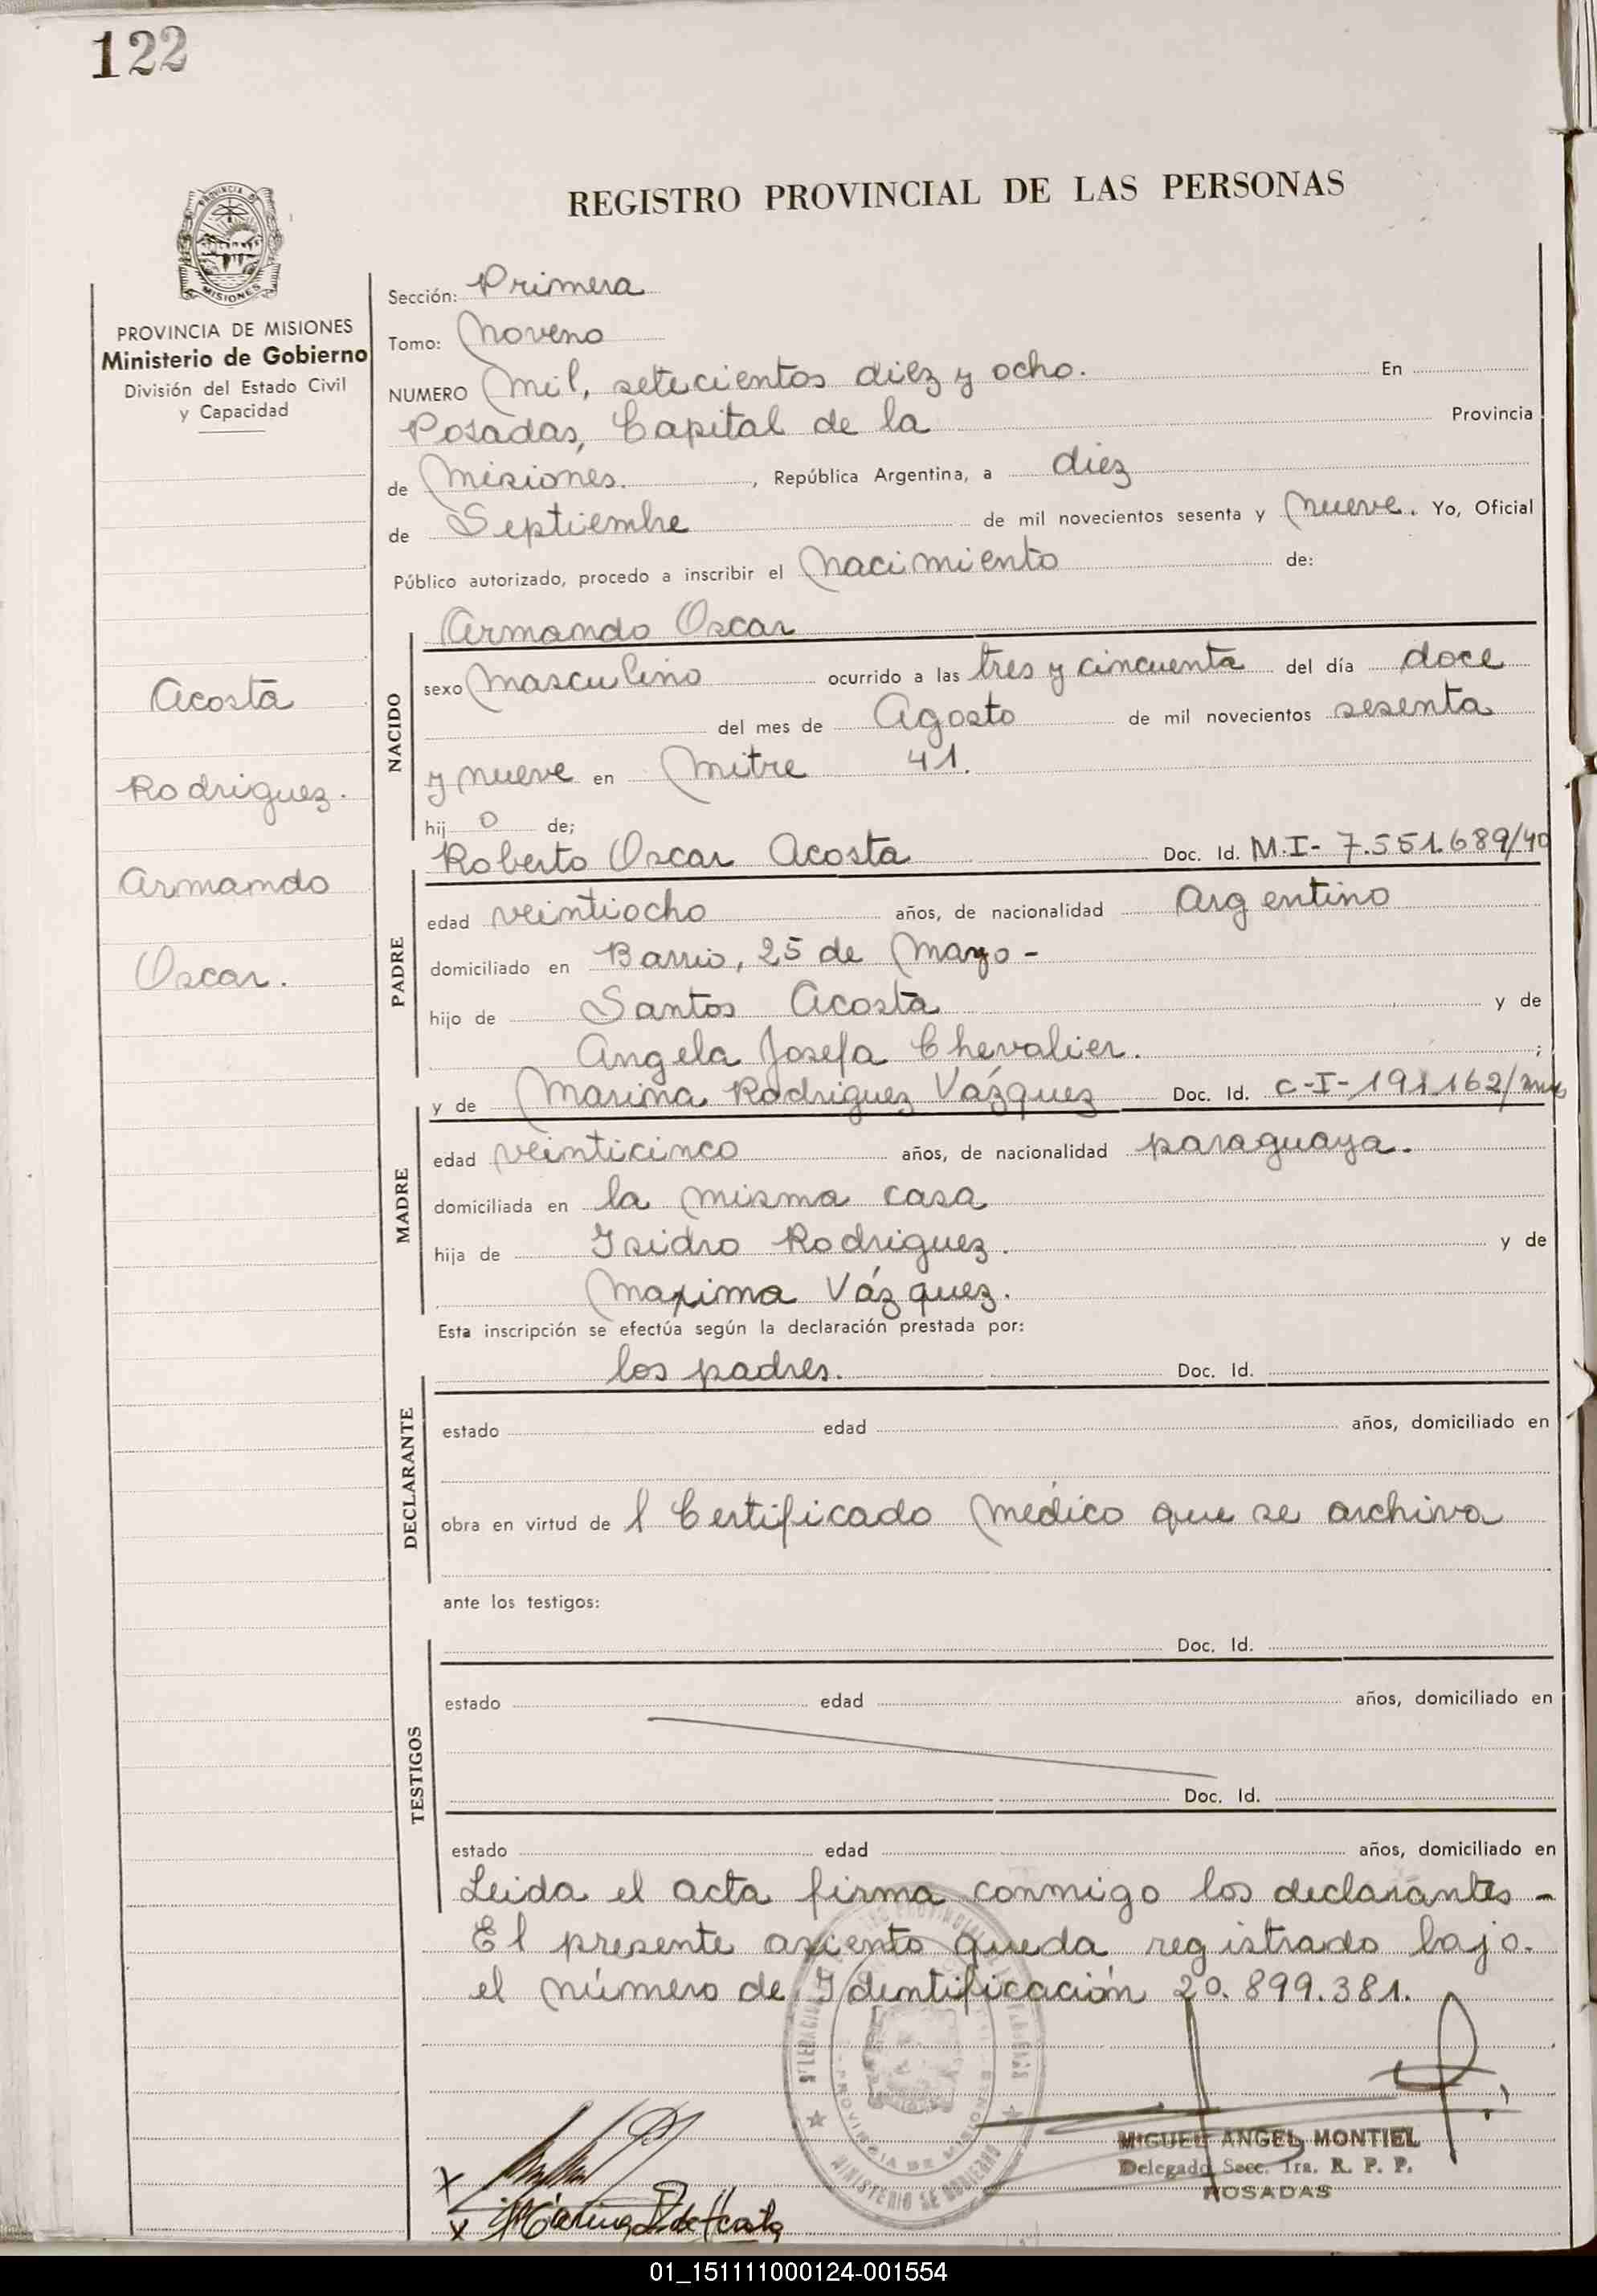 122
REGISTRO PROVINCIAL DE LAS PERSONAS
PROVINCIA DE MISIONES
Ministerio de Gobierno
División del Estado Civil
y Capacidad
Acosta
Rodriguez.
Armando
Oscar.
Sección: Primera
Tomo: Noveno
NUMERO Mil, setecientos diez y ocho. En
Posadas, Capital de la Provincia
de Misiones. , República Argentina, a diez
de Septiembre de mil novecientos sesenta y nueve. Yo, Oficial
Público autorizado, procedo a inscribir el Nacimiento de:
NACIDO
Armando Oscar
sexo Masculino ocurrido a las tres y cincuenta del día doce
del mes de Agosto de mil novecientos sesenta
y nueve en Mitre 41.
hij o de;
PADRE
Roberto Oscar Acosta Doc. Id. M.I- 7.551.689/40
edad veintiocho años, de nacionalidad Argentino
domiciliado en Barrio, 25 de Mayo -
hijo de Santos Acosta y de
Angela Josefa Chevalier. ;
MADRE
y de Marina Rodriguez Vázquez Doc. Id. C-I-191.162/
edad veinticinco años, de nacionalidad paraguaya.
domiciliada en la misma casa
hija de Isidro Rodriguez. y de
Maxima Vázquez.
Esta inscripción se efectúa según la declaración prestada por:
DECLARANTE
los padres. Doc. Id.
estado edad años, domiciliado en
obra en virtud de l Certificado Médico que se archiva
ante los testigos:
TESTIGOS
Doc. Id.
estado edad años, domiciliado en
Doc. Id.
estado edad años, domiciliado en
Leida el acta firma conmigo los declarantes -
El presente asiento queda registrado bajo.
el número de Identificación 20.899.381.
MIGUEL ANGEL MONTIEL
Delegado Secc. 1ra. R. P. P.
POSADAS
01_151111000124-001554